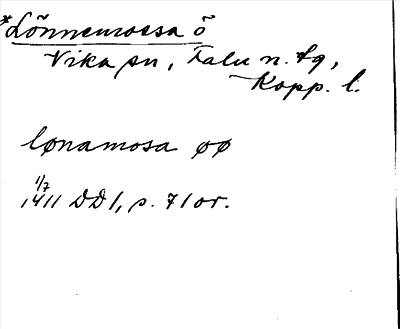 *Lönnemossa ö
Vika sn, Falu n. fg,
Kopp. l.
lønamosa øø
1/7
1411 DD 1, s. 71 or.